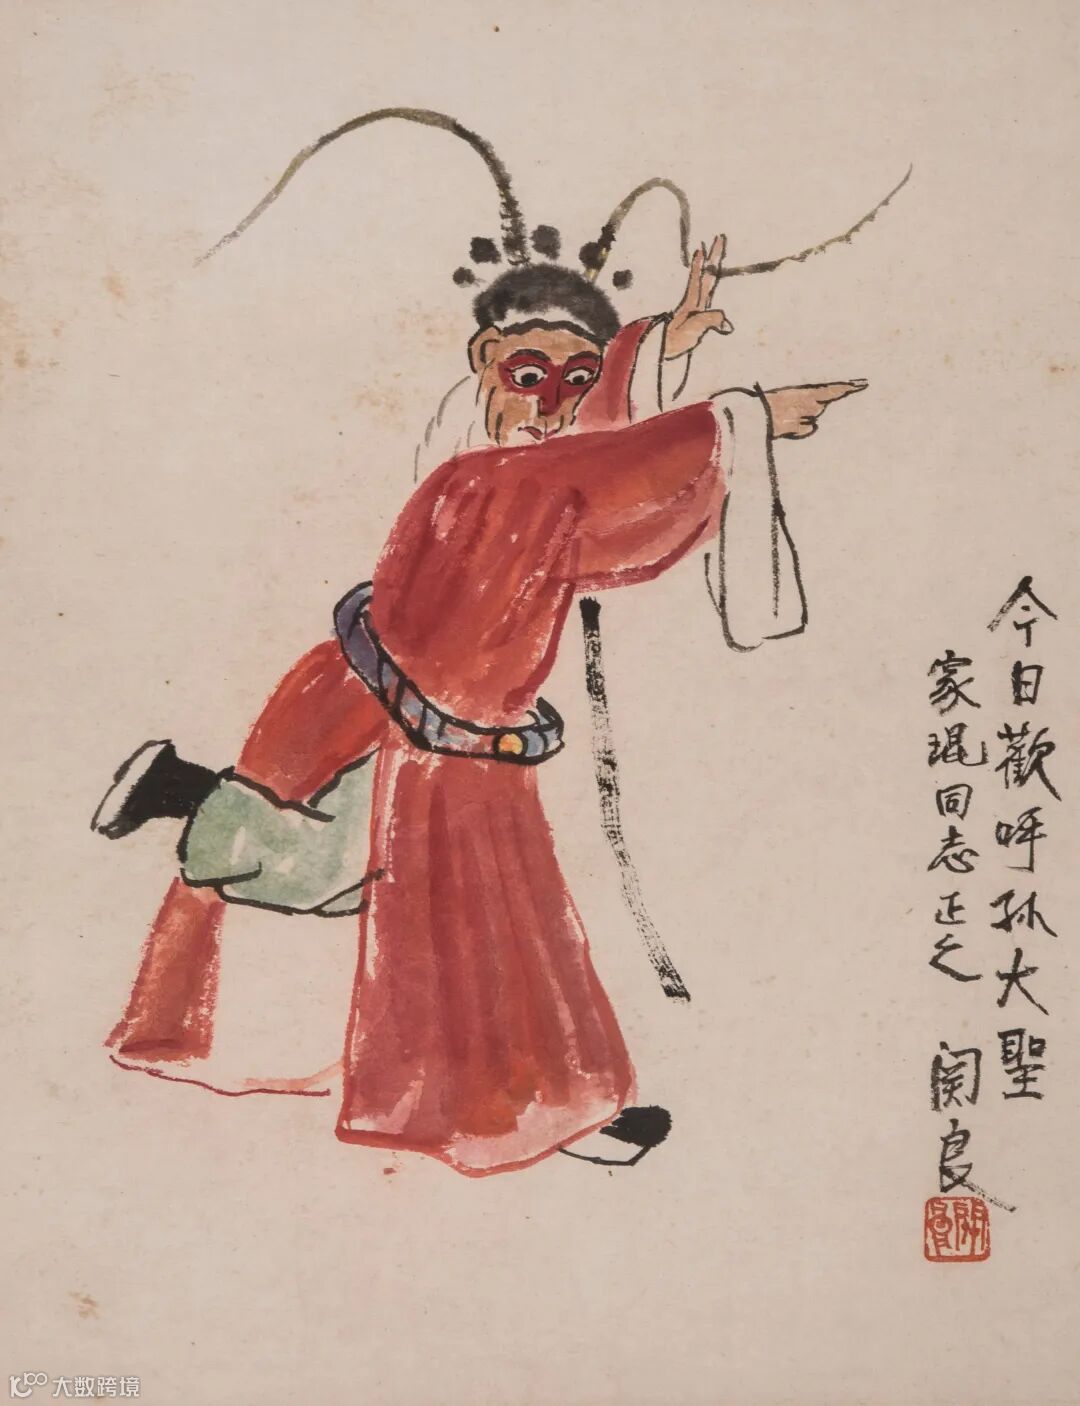 今日歡呼孫大聖
家琨同志正之
关良
關良
大数跨境